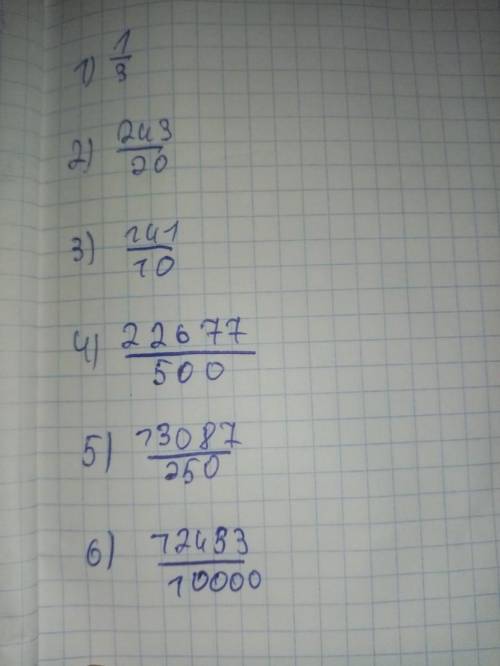 1) 1/3
2) 243/20
3) 141/10
4) 22677/500
5) 13087/250
6) 12433/10000